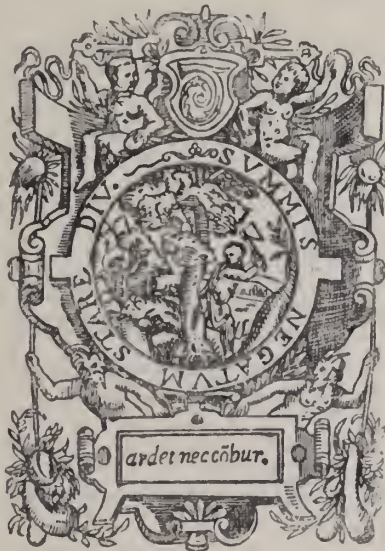 SVMMIS NEGATVM STARE DIV.
ardet nec cōbur.